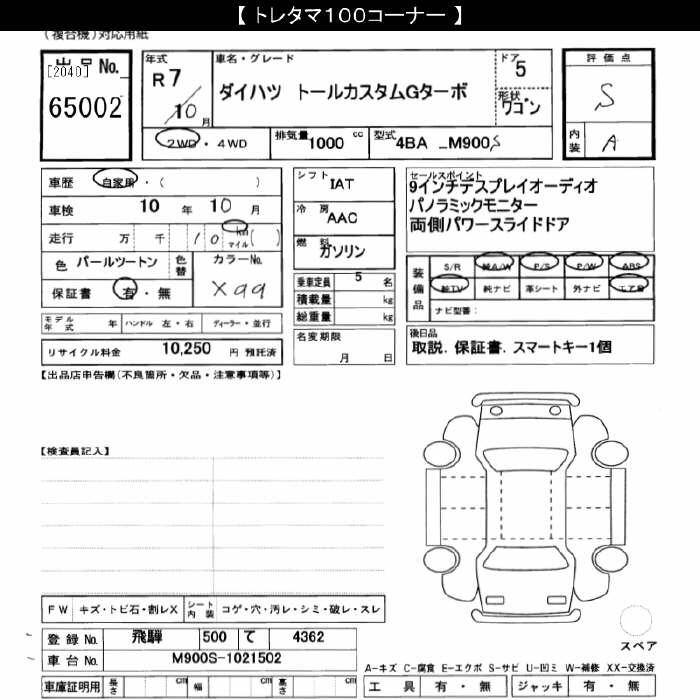 【 トレタマ１００コーナー 】
(複合機)対応用紙
出品 No.
[2040]
65002
年式
R 7
10 月
車名・グレード
ダイハツ トールカスタムGターボ
ドア
5
形状
ワゴン
評価点
S
内装
A
2WD・4WD
排気量 1000 cc
型式 4BA _M900S
車歴 自家用・( )
車検 10 年 10 月
走行 万 千 10 km マイル ( )
色 パールツートン
色替
カラーNo.
X99
保証書 有・無
シフト
IAT
冷房
AAC
燃料
ガソリン
乗車定員 5 名
積載量 kg
総重量 kg
セールスポイント
9インチデスプレイオーディオ
パノラミックモニター
両側パワースライドドア
装備品
S/R 純A/W P/S P/W ABS
純TV 純ナビ 革シート 外ナビ エアB
ナビ型番:
モデル年式 年 ハンドル 左・右 ディーラー・並行
リサイクル料金 10,250 円 預託済
名変期限
月 日
後日品
取説. 保証書. スマートキー1個
【出品店申告欄(不良箇所・欠品・注意事項等)】
【検査員記入】
FW キズ・トビ石・割レX
シート内装 コゲ・穴・汚レ・シミ・破レ・スレ
登録 No. 飛騨 500 て 4362
車台 No. M900S-1021502
車庫証明用 長さ cm 幅 cm 高さ cm
スペア
A-キズ C-腐食 E-エクボ S-サビ U-凹ミ W-補修 XX-交換済
工具 有・無 ジャッキ 有・無